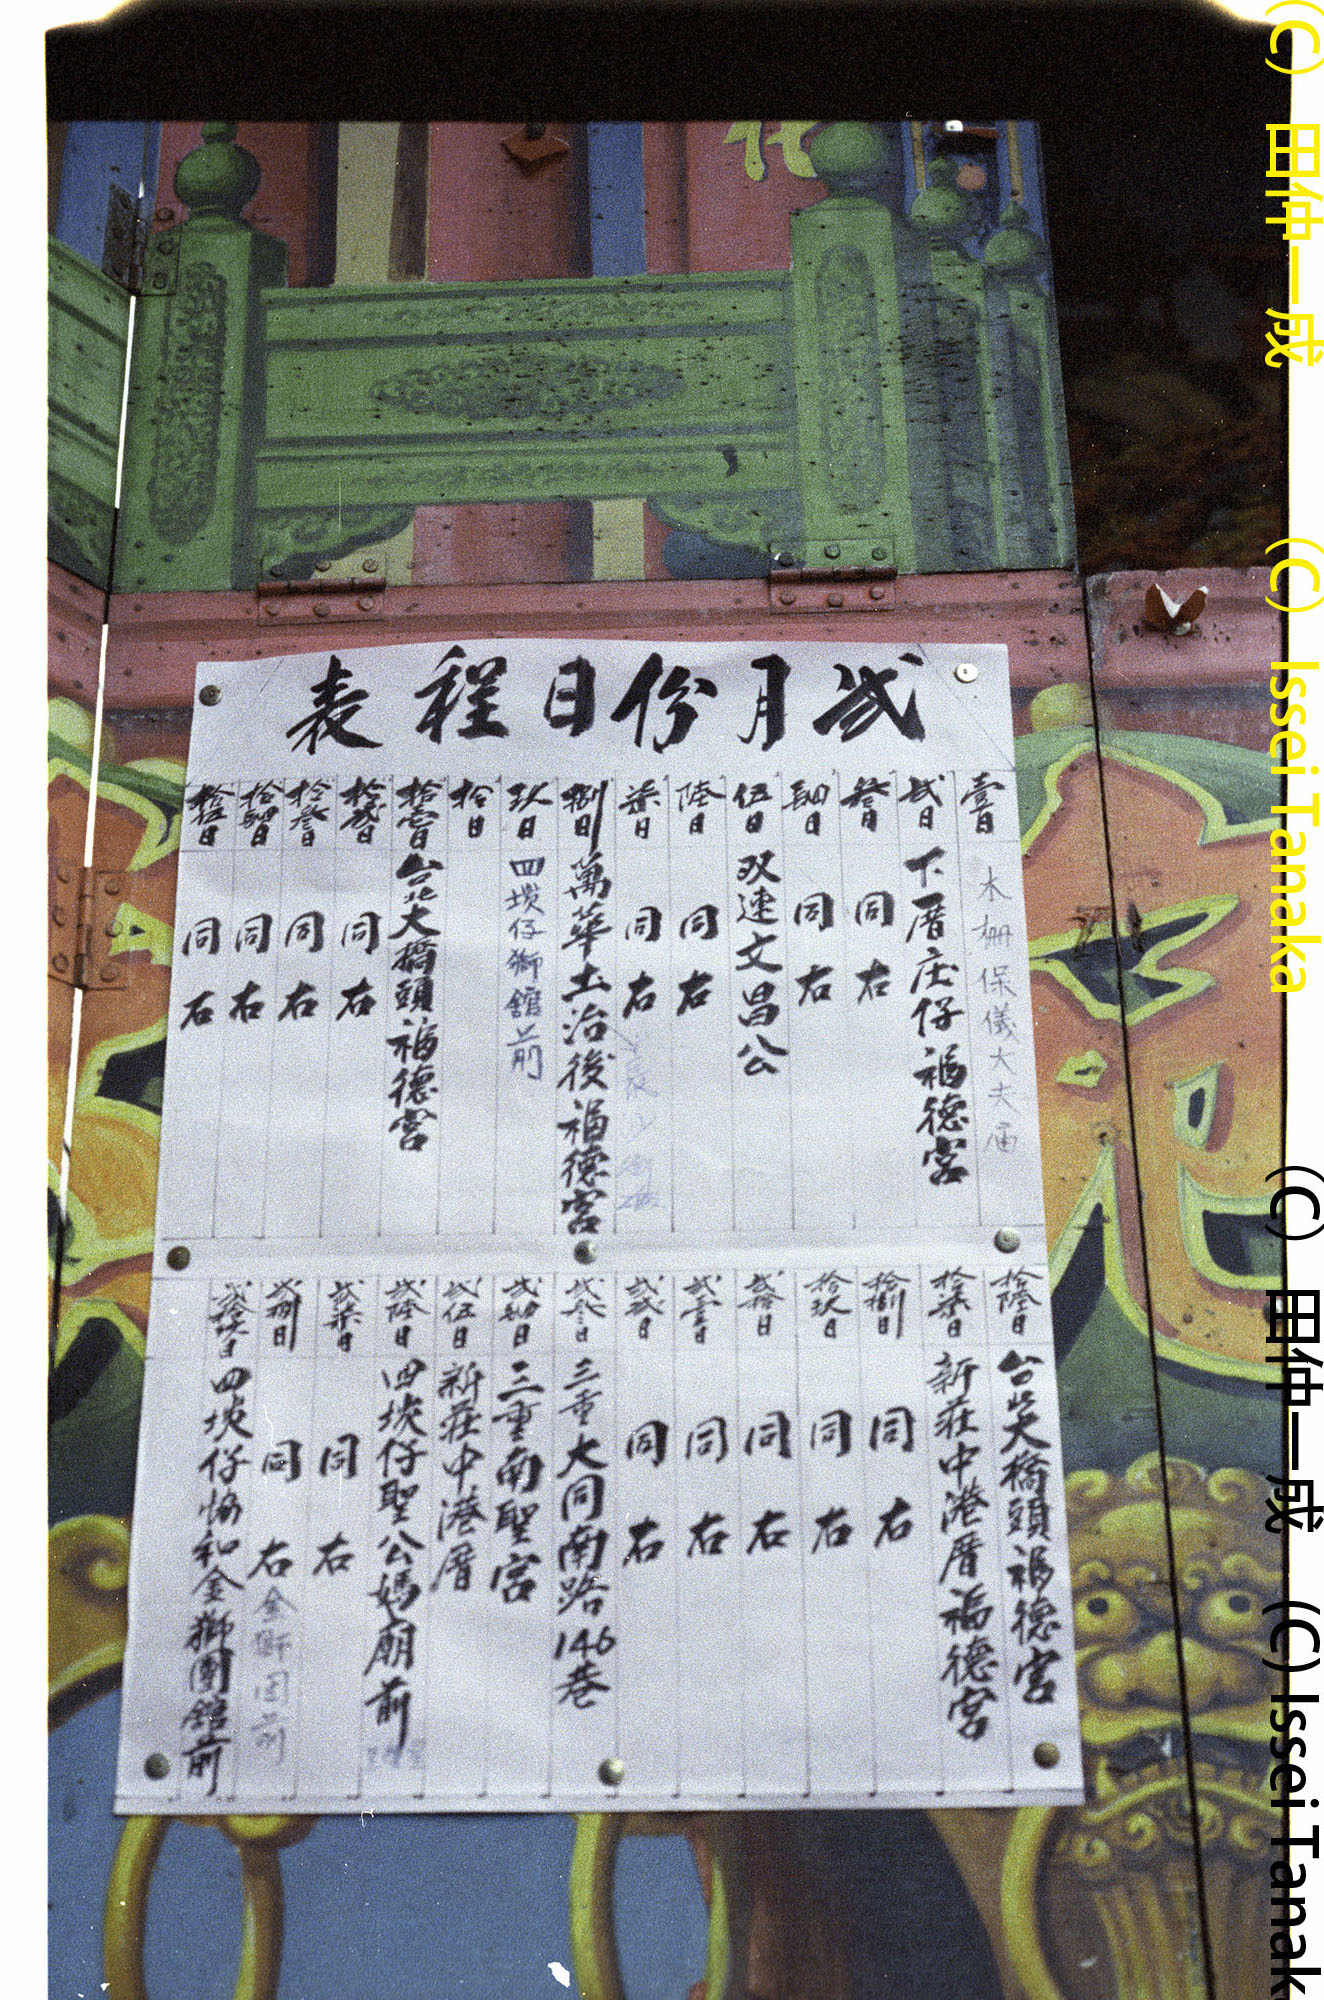 弍月份日程表
壹日 木柵保儀大夫庙
弍日 下厝庄仔福德宮
叁日 同右
肆日 同右
伍日 双連文昌公
陸日 同右
柒日 同右
捌日 萬華土治後福德宮
玖日 四崁仔獅館前
拾日
拾壹日 台北大橋頭福德宮
拾弍日 同右
拾叁日 同右
拾肆日 同右
拾伍日 同右
拾陸日 台北大橋頭福德宮
拾柒日 新莊中港厝福德宮
拾捌日 同右
拾玖日 同右
弍拾日 同右
弍壹日 同右
弍弍日 同右
弍叁日 三重大同南路146巷
弍肆日 三重南聖宮
弍伍日 新莊中港厝
弍陸日 四崁仔聖公媽廟前
弍柒日 同右
弍捌日 同右 金獅团前
弍拾玖日 四崁仔協和金獅團館前
(C) 田仲一成 (C) Issei Tanaka
(C) 田仲一成 (C) Issei Tanak